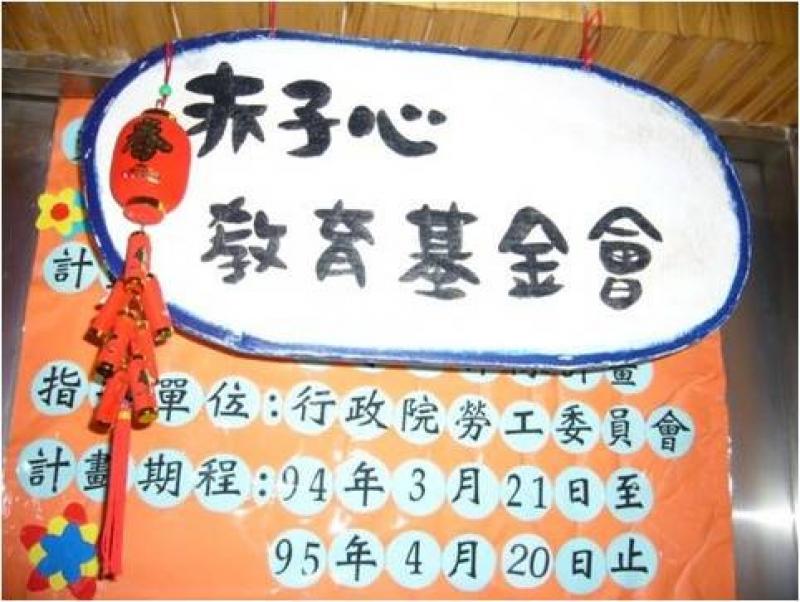 赤子心
教育基金會
春
計
畫
指 單位:行政院勞工委員會
計畫期程:94年3月21日至
95年4月20日止